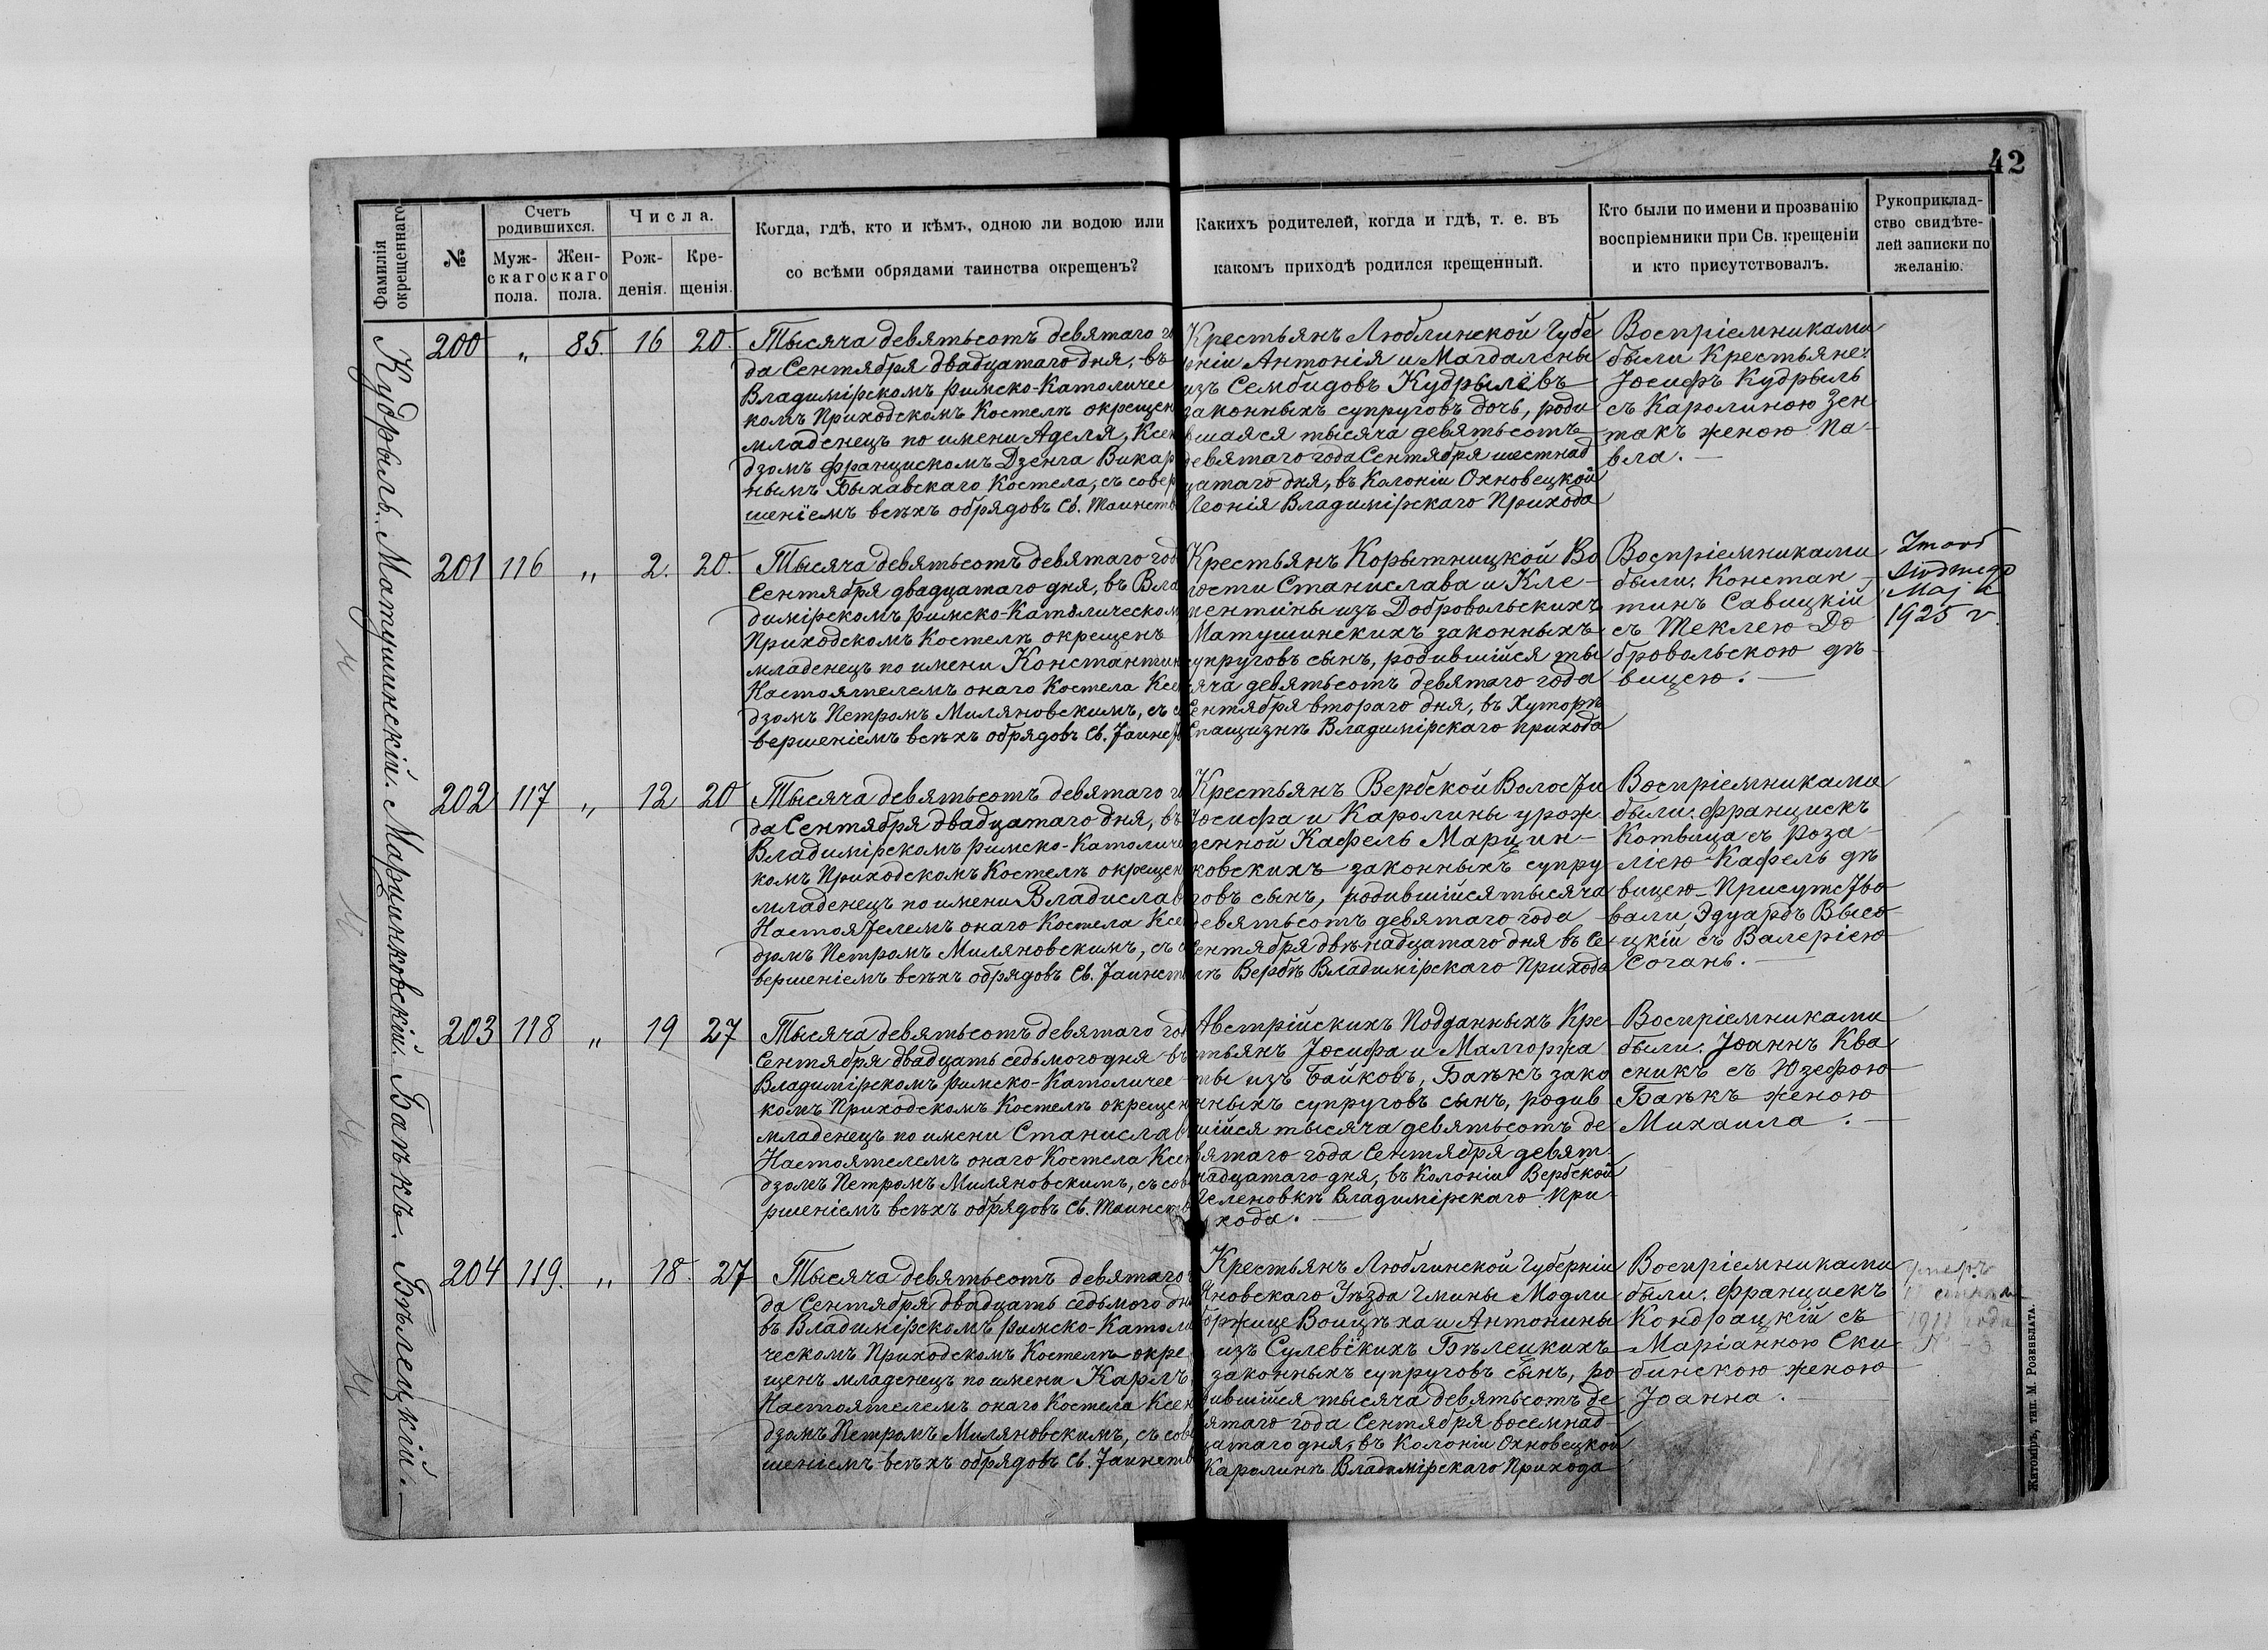 42
Фамилія окрещеннаго
№
Счетъ родившихся.
Муж-
скаго
пола.
Жен-
скаго
пола.
Числа.
Рож-
денія.
Кре-
щенія.
Когда, гдѣ, кто и кѣмъ, одною ли водою или
со всѣми обрядами таинства окрещенъ?
Какихъ родителей, когда и гдѣ, т. е. въ
какомъ приходѣ родился крещенный.
Кто были по имени и прозванію
воспріемники при Св. крещеніи
и кто присутствовалъ.
Рукоприклад-
ство свидѣте-
лей записки по
желанію.
Кудрыль.
200 „ 85. 16 20.
Тысяча девятьсотъ девятаго го
да Сентября двадцатаго дня, въ
Владимірскомъ римско-Католичес
комъ Приходскомъ Костелѣ окрещен
младенецъ по имени Аделя, Ксен
дзомъ Францискомъ Дзенга Викар
нымъ Быхавскаго Костела, съ совер
шеніемъ всѣхъ обрядовъ Св. Таинств
Крестьянъ Люблинской Губе
рніи Антонія и Магдалены
изъ Сембидовъ Кудрылёвъ
законныхъ супруговъ дочь, роди
вшаяся тысяча девятьсотъ
девятаго года Сентября шестнад
цатаго дня, въ Колоніи Охновецкой
Леонія Владимірскаго Прихода
Воспріемниками
были Крестьяне:
Іосифъ Кудрыль
съ Каролиною Зен
такъ женою Па-
вла.
Матушинскій.
201 116 „ 2. 20.
Тысяча девятьсотъ девятаго год
Сентября двадцатаго дня, въ Вла
димірскомъ римско-Католическом
Приходскомъ Костелѣ окрещенъ
младенецъ по имени Константин
Настоятелемъ онаго Костела Ксен
дзомъ Петромъ Миляновскимъ, съ с
вершеніемъ всѣхъ обрядовъ Св. Таинст
Крестьянъ Корытницкой Во
лости Станислава и Кле-
ментины изъ Добровольскихъ
Матушинскихъ законныхъ
супруговъ сынъ, родившійся ты
сяча девятьсотъ девятаго года
Сентября втораго дня, въ Хуторѣ
Спащизнѣ Владимірскаго прихода
Воспріемниками
были: Констан-
тинъ Савицкій
съ Теклею До
бровольскою дѣ-
вицею.
Zmarł
siódmego
Maja
1925 r.
Марцинковскій.
202 117 „ 12 20
Тысяча девятьсотъ девятаго го
да Сентября двадцатаго дня, въ
Владимірскомъ римско-Католичес
комъ Приходскомъ Костелѣ окрещен
младенецъ по имени Владислав
Настоятелемъ онаго Костела Ксен
дзомъ Петромъ Миляновскимъ, съ с
вершеніемъ всѣхъ обрядовъ Св. Таинств
Крестьянъ Вербской Волости
Іосифа и Каролины урож
денной Кафель Марцин-
ковскихъ законныхъ супру
говъ сынъ, родившійся тысяча
девятьсотъ девятаго года
Сентября двѣнадцатаго дня въ Се
лѣ Вербѣ Владимірскаго Прихода
Воспріемниками
были: Францискъ
Котвица съ Роза-
ліею Кафель дѣ
вицею Присутство
вали Эдуардъ Высо-
цкій съ Валеріею
Сочань.
Баѣкъ.
203 118 „ 19 27
Тысяча девятьсотъ девятаго го
Сентября двадцать седьмого дня въ
Владимірскомъ римско-Католичес-
комъ Приходскомъ Костелѣ окрещен
младенецъ по имени Станислав
Настоятелемъ онаго Костела Ксен
дзомъ Петромъ Миляновскимъ, съ сов
ршеніемъ всѣхъ обрядовъ Св. Таинств
Австрійскихъ Подданныхъ Кре
стьянъ Іосифа и Малгоржа
ты изъ Байковъ, Баѣкъ зако
нныхъ супруговъ сынъ, родив
шійся тысяча девятьсотъ де
вятаго года Сентября девят-
надцатаго дня, въ Колоніи Вербской
Геленовкѣ Владимірскаго При-
хода.
Воспріемниками
были: Іоаннъ Ква
сникъ съ Юзефою
Баѣкъ женою
Михаила.
Бѣлецкій.
204 119. „ 18. 27
Тысяча девятьсотъ девятаго
да Сентября двадцать седьмого дня
въ Владимірскомъ римско-Католи
ческомъ Приходскомъ Костелѣ окре
щенъ младенецъ по имени Карлъ,
Настоятелемъ онаго Костела Ксен
дзомъ Петромъ Миляновскимъ, съ сов
шеніемъ всѣхъ обрядовъ Св. Таинств
Крестьянъ Люблинской Губерніи
Яновскаго Уѣзда Гмины Модли
боржице Войцѣха и Антонины
изъ Сулевскихъ Бѣлецкихъ
законныхъ супруговъ сынъ, ро
дившійся тысяча девятьсотъ де
вятаго года Сентября восемнад-
цатаго дня, въ Колоніи Охновецкой
Каролинѣ Владимірскаго Прихода
Воспріемниками
были: Францискъ
Кондрацкій съ
Маріанною Ски
бинскою женою
Іоанна.
умеръ
1911 года
Житоміръ, тип. М. Розенблата.